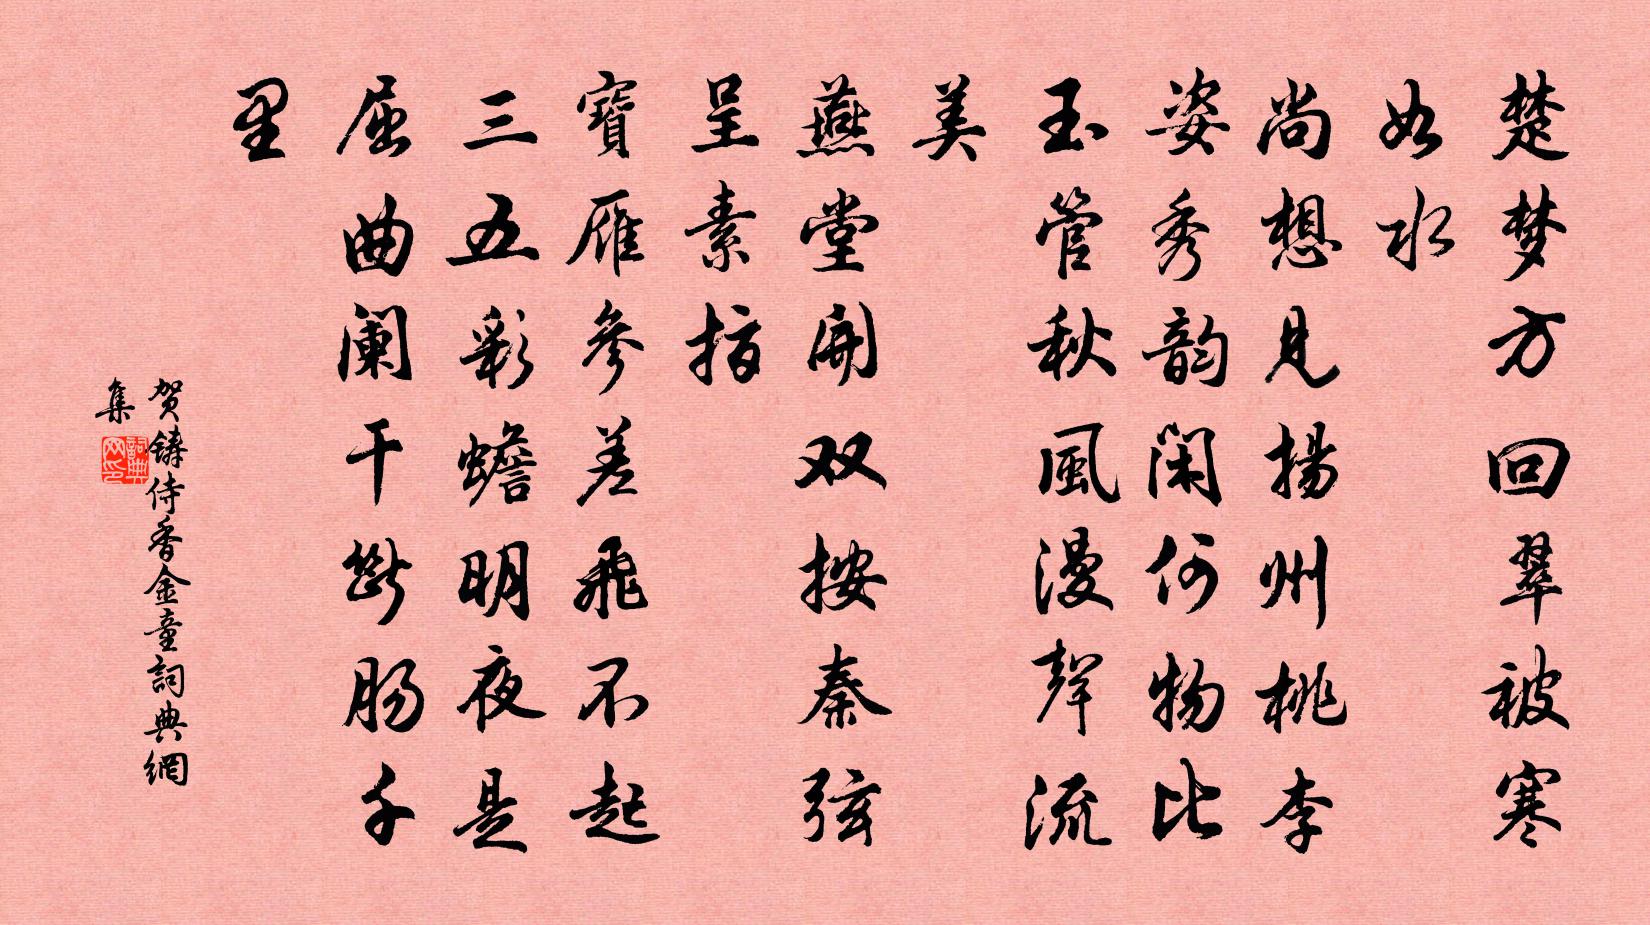 楚梦方回翠被寒
如水
尚想見揚州桃李
姿秀韵闲何物比
玉管秋風漫聲流
美
燕堂開双按秦弦
呈素指
寶雁參差飛不起
三五彩蟾明夜是
屈曲阑干斷肠千
里
贺鑄侍香金童詞典網
集
詞典
网印